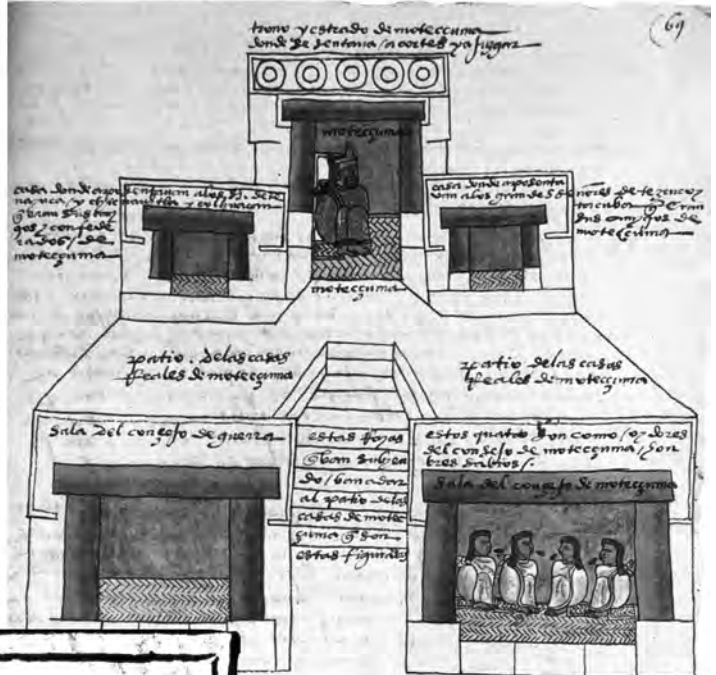 69
trono y estrado de motecçuma
donde se sentaua a cortes y a juzgar
motecçuma
casa donde aposentauan a los s.s de te
nayuca / y chicnauhtla / y colhuacan
q̃ eran sus ami
gos / y confede
rados / de
motecçuma
casa donde aposenta
uan a los grandes señores de tezcuco y
tacuba q̃ eran
sus amigos de
motecçuma
motecçuma
patio. delas casas
Reales de motecçuma
patio delas casas
Reales de motecçuma
sala del consejo de guerra
estas Rayas
q̃ ban subjen
do / ban a dar
al patio delas
casas de motec
çuma q̃ son
estas figuradas
estos quatro son como / oydores
del consejo de motecçuma / hon
bres sabios /.
sala del consejo de motecçuma